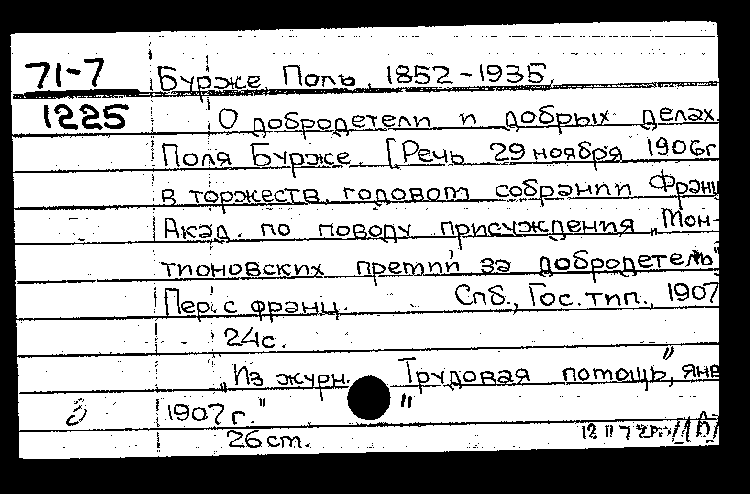 71-7 Бурже Поль, 1852-1935.
1225 О добродетели и добрых делах
Поля Бурже. [Речь 29 ноября 1906г
в торжеств. годовом собрании Франц
Акад. по поводу присуждения „Мон-
тионовских премий за добродетель"
Пер. с франц. Спб., Гос. тип., 1907
24с.
„Из журн. „Трудовая помощь", янв
1907г."
26 ст.